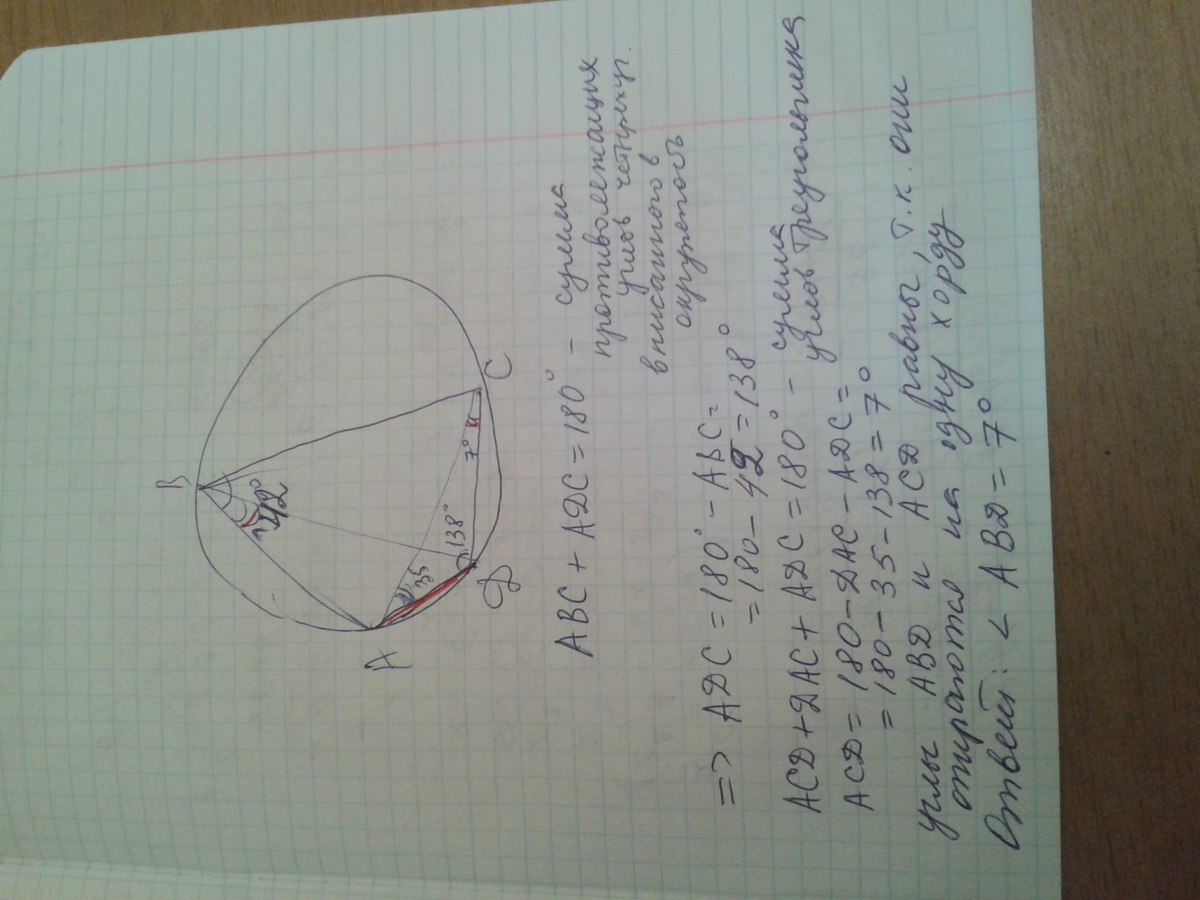 B
42°
A
35
138°
7°
C
D
ABC + ADC = 180° - сумма
противолежащих
углов четырехуг.
вписанного в
окружность
=> ADC = 180° - ABC =
= 180 - 42 = 138°
ACD + DAC + ADC = 180° - сумма
углов треугольника
ACD = 180 - DAC - ADC =
= 180 - 35 - 138 = 7°
углы ABD и ACD равны, т.к. они
опираются на одну хорду
Ответ: < ABD = 7°